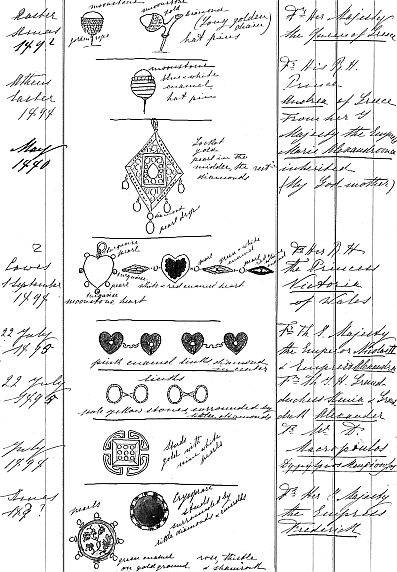 Easter
Xmas
1892
moonstone
moonstone
gold
diamond
(Long golden
chain)
golden rope
hat pins
Fr Her Majesty
the Queen of Greece
Athens
Easter
1894
moonstone
blue & white
enamel
hat pin
Fr His R. H.
Prince
Andrea of Greece
May
1880
Locket
gold
pearl in the
middle, the rest
diamonds
pearl drops
From her I
Majesty the Empress
Marie Alexandrovna
inherited
(My God-mother)
?
Cowes
September
1894
turquoise
pearl
turquoise
pearl
turquoise
moonstone heart
pearl
green & white
enamel
white & red enamel heart
Fr Her R. H.
the Princess
Victoria
of Wales
22 July
1895
pink enamel links diamond
in center
Fr Th I. Majesty
the Emperor Nicolas II
& Empress Alexandra
22 July
1895
links
pale yellow stones surrounded by
little diamonds
Fr Th I. H. Grand
duchess Maria & Grand
duke Alexander
July
1894
Studs
gold with
nine white
pearls
Fr Mr
Macropoulos
Xmas
18?
pearls
Chrysoprase
surrounded by
little diamonds & emeralds
green enamel
on gold ground
rose, thistle
& shamrock
Fr Her I. Majesty
the Empress
Frederick